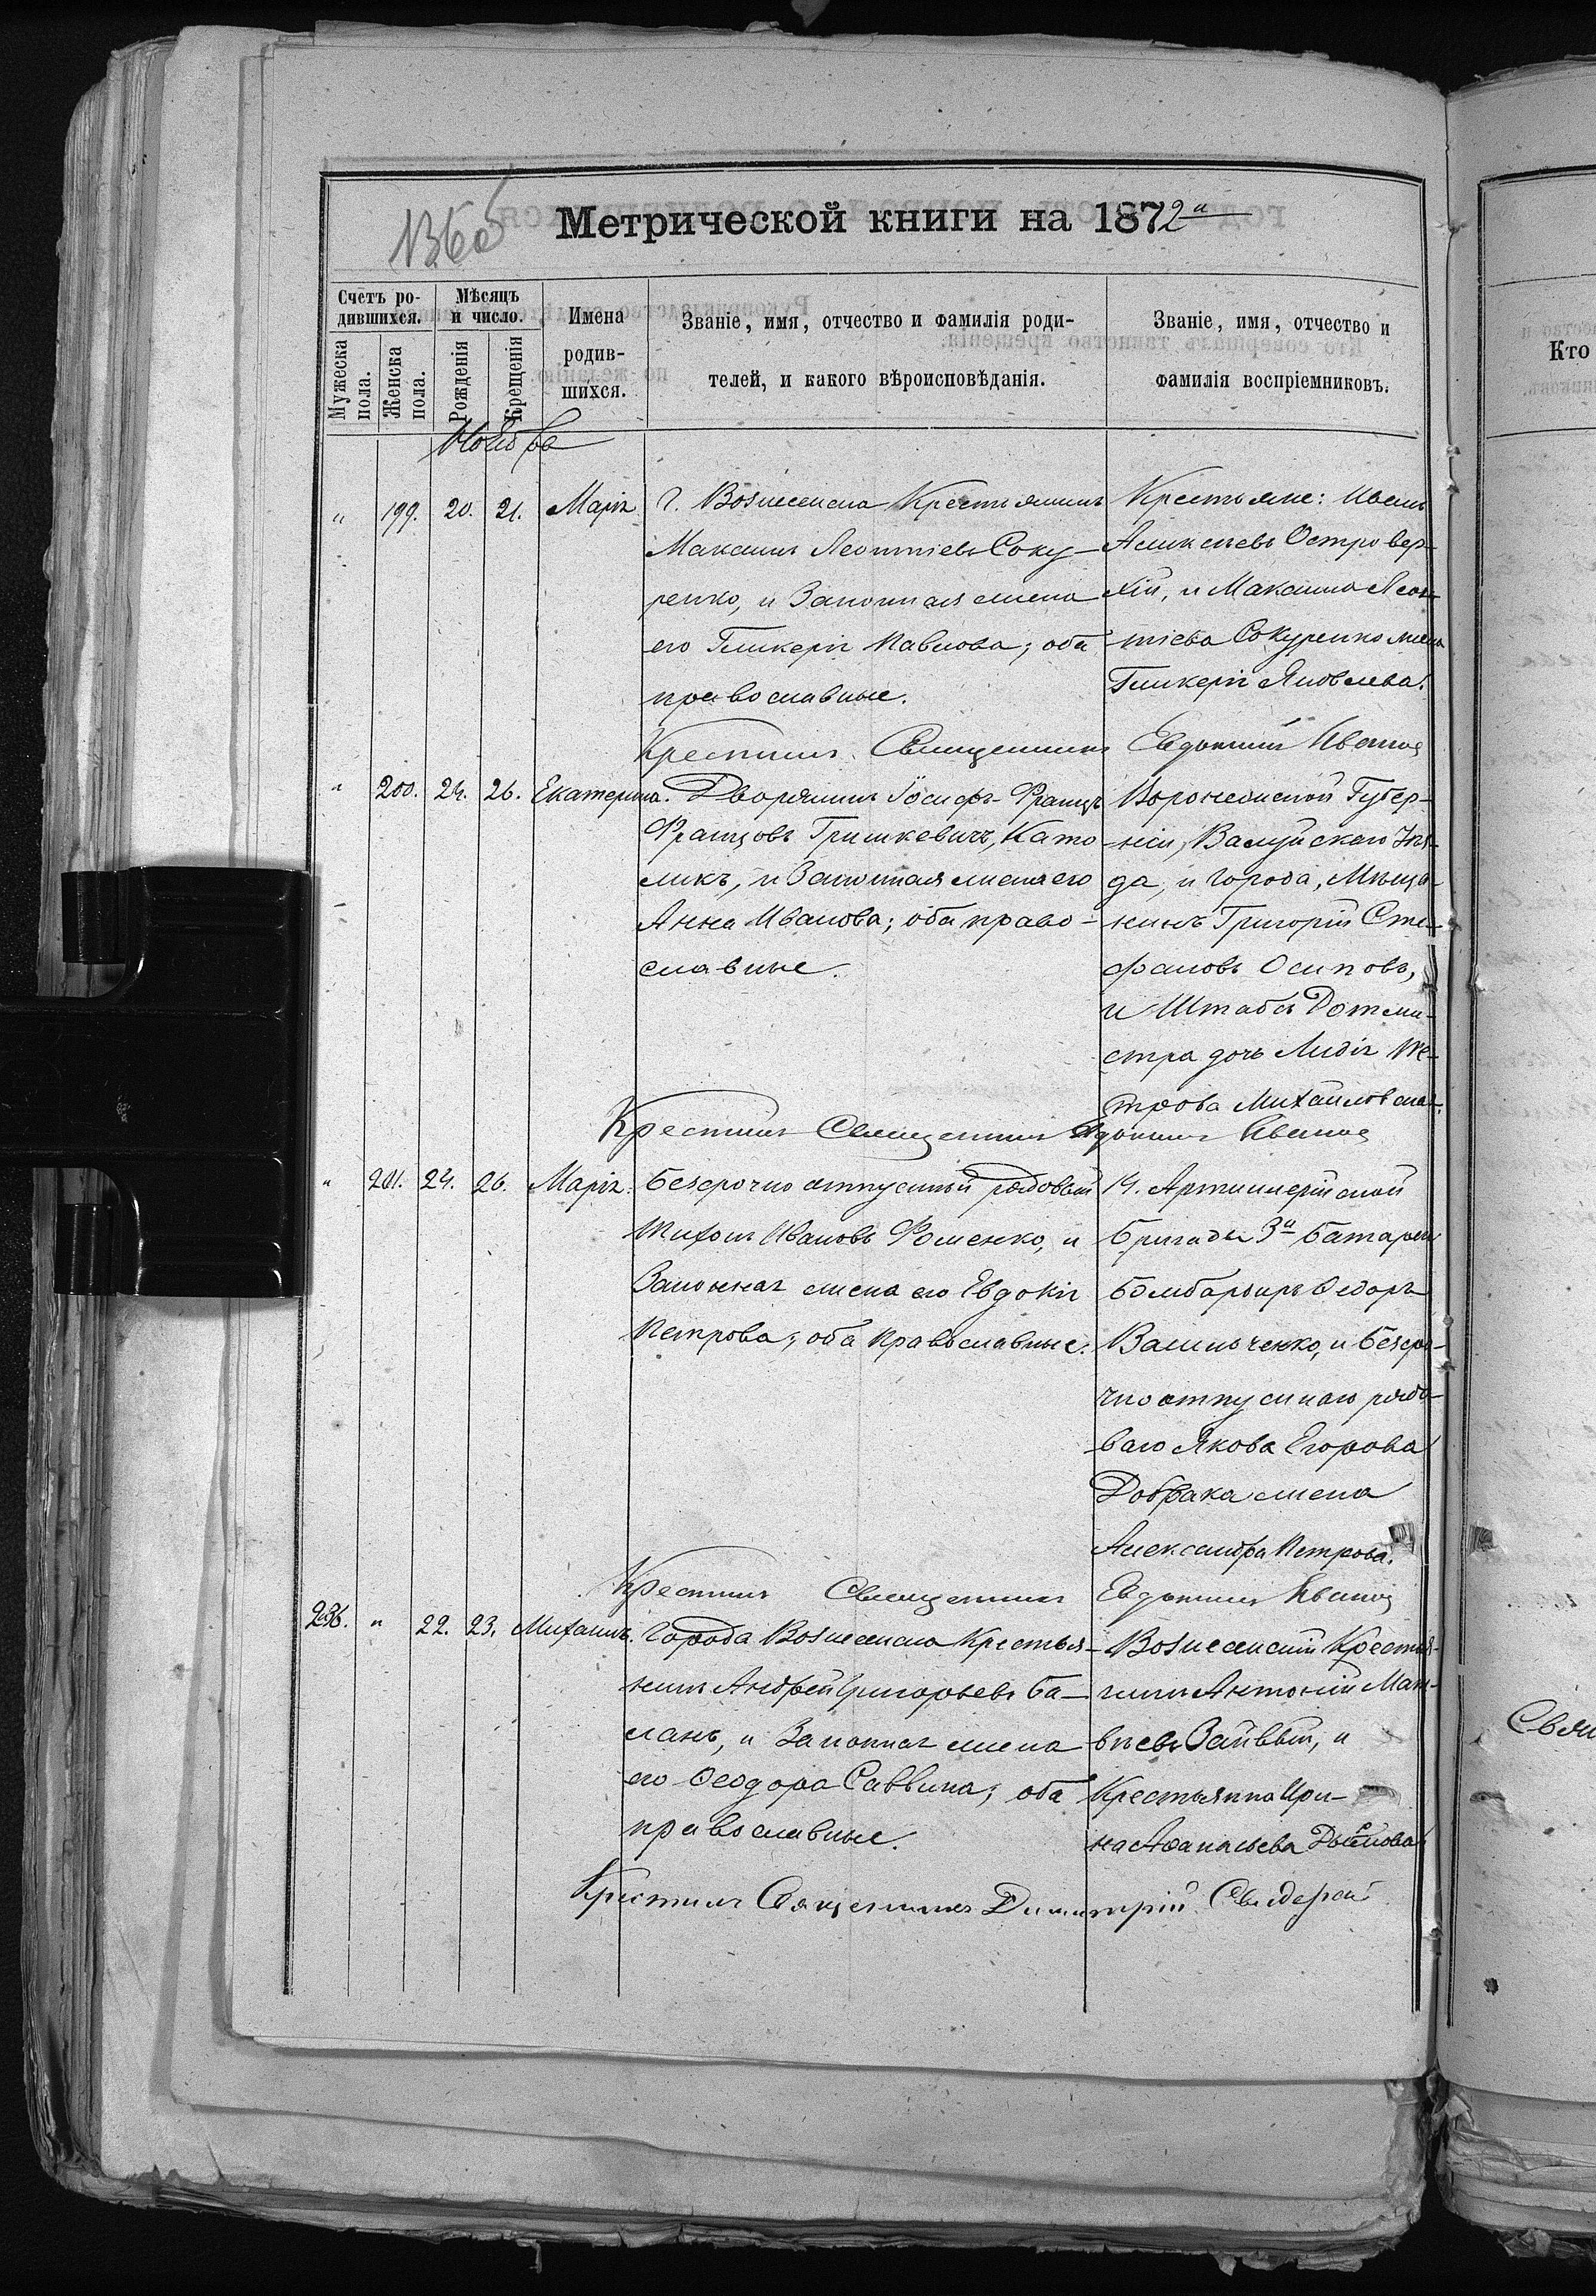 136об
Метрической книги на 1872й
Счетъ ро-
дившихся.
Мужеска
пола.
Женска
пола.
Мѣсяцъ
и число.
Рожденія
Крещенія
Имена
родив-
шихся.
Званіе, имя, отчество и фамилія роди-
телей, и какого вѣроисповѣданія.
Званіе, имя, отчество и
фамилія воспріемниковъ.
Ноябрь
" 199. 20. 21. Марія
г. Вознесенска Крестьянинъ
Максимъ Леонтіевъ Соку-
ренко, и Законная жена
его Гликерія Павлова; оба
православные.
Крестьяне: Иванъ
Алексѣевъ Островер-
хій, и Максима Леон-
тіева Сокуренко жена
Гликерія Яковлева.
Крестилъ Священникъ Евдокимъ Иванов
" 200. 24. 26. Екатерина.
Дворянинъ Іосифъ-Францъ
Францовъ Гришкевичъ, Като-
ликъ, и Законная жена его
Анна Иванова; оба право-
славные.
Воронежской Губер-
ніи, Валуйскаго Уѣз-
да, и города, Мѣща-
нинъ Григорій Сте-
фановъ Осиповъ,
и Штабсъ Ротми-
стра дочь Лидія Пе-
трова Михайловская.
Крестилъ Священникъ Евдокимъ Иванов
" 201. 24. 26. Марія.
Безсрочно отпускный рядовый
Тихонъ Ивановъ Фоменко, и
Законная жена его Евдокія
Петрова; оба православные.
14. Артиллерійской
бригады 3й батареи
бомбардиръ Федоръ
Васильченко, и безсро-
чноотпускнаго рядо-
ваго Якова Егорова
Добрака жена
Александра Петрова.
Крестилъ Священникъ Евдокимъ Иванов
236. " 22. 23. Михаилъ.
Города Вознесенска Крестья-
нинъ Андрей Григорьевъ Ба-
ланъ, и Законная жена
его Феодора Саввина; оба
православные.
Вознесенскій Крестья-
нинъ Антоній Мат-
вѣевъ Зайвый, и
Крестьянка Ири-
на Афанасьева
Крестилъ Священникъ Димитрій
Кто